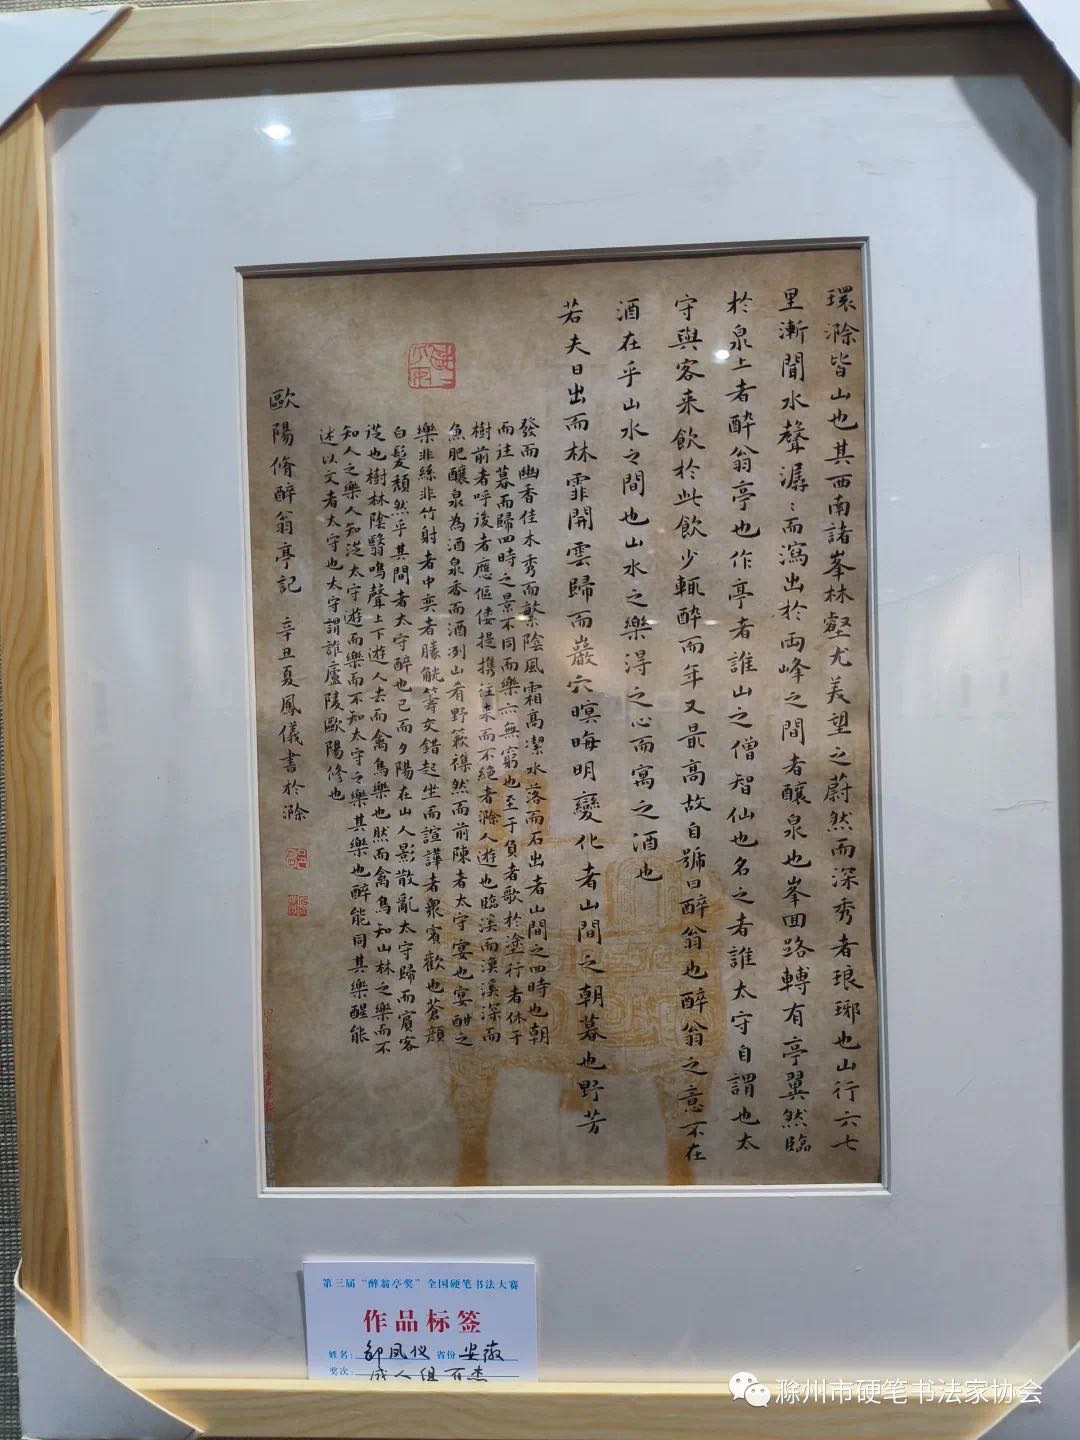 環滁皆山也其西南諸峯林壑尤美望之蔚然而深秀者琅琊也山行六七
里漸聞水聲潺〻而瀉出於兩峰之間者釀泉也峯回路轉有亭翼然臨
於泉上者醉翁亭也作亭者誰山之僧智仙也名之者誰太守自謂也太
守與客来飲於此飲少輒醉而年又最高故自號曰醉翁也醉翁之意不在
酒在乎山水之間也山水之樂得之心而寓之酒也
若夫日出而林霏開雲歸而巖穴暝晦明變化者山間之朝暮也野芳
發而幽香佳木秀而繁陰風霜高潔水落而石出者山間之四時也朝
而往暮而歸四時之景不同而樂亦無窮也至于負者歌於塗行者休于
樹前者呼後者應傴僂提携往来而不絶者滁人遊也臨溪而漁溪深而
魚肥釀泉為酒泉香而酒洌山肴野蔌襍然而前陳者太守宴也宴酣之
樂非絲非竹射者中奕者勝觥籌交錯起坐而諠譁者衆賓歡也蒼顏
白髮頹然乎其間者太守醉也已而夕陽在山人影散亂太守歸而賓客
從也樹林陰翳鳴聲上下遊人去而禽鳥樂也然而禽鳥知山林之樂而不
知人之樂人知從太守遊而樂而不知太守之樂其樂也醉能同其樂醒能
述以文者太守也太守謂誰廬陵歐陽修也
歐陽脩醉翁亭記 辛丑夏鳳儀書於滁
第三届“醉翁亭奖”全国硬笔书法大赛
作品标签
姓名：邹凤仪 省份 安徽
奖次：成人组 百杰
滁州市硬笔书法家协会